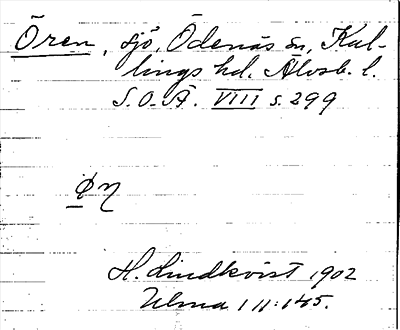 Ören, sjö, Ödenäs sn, Kul-
lings hd. Älvsb. l.
S. O. Ä. VIII s. 299
H. Lindkvist 1902
Ulma 111:145.